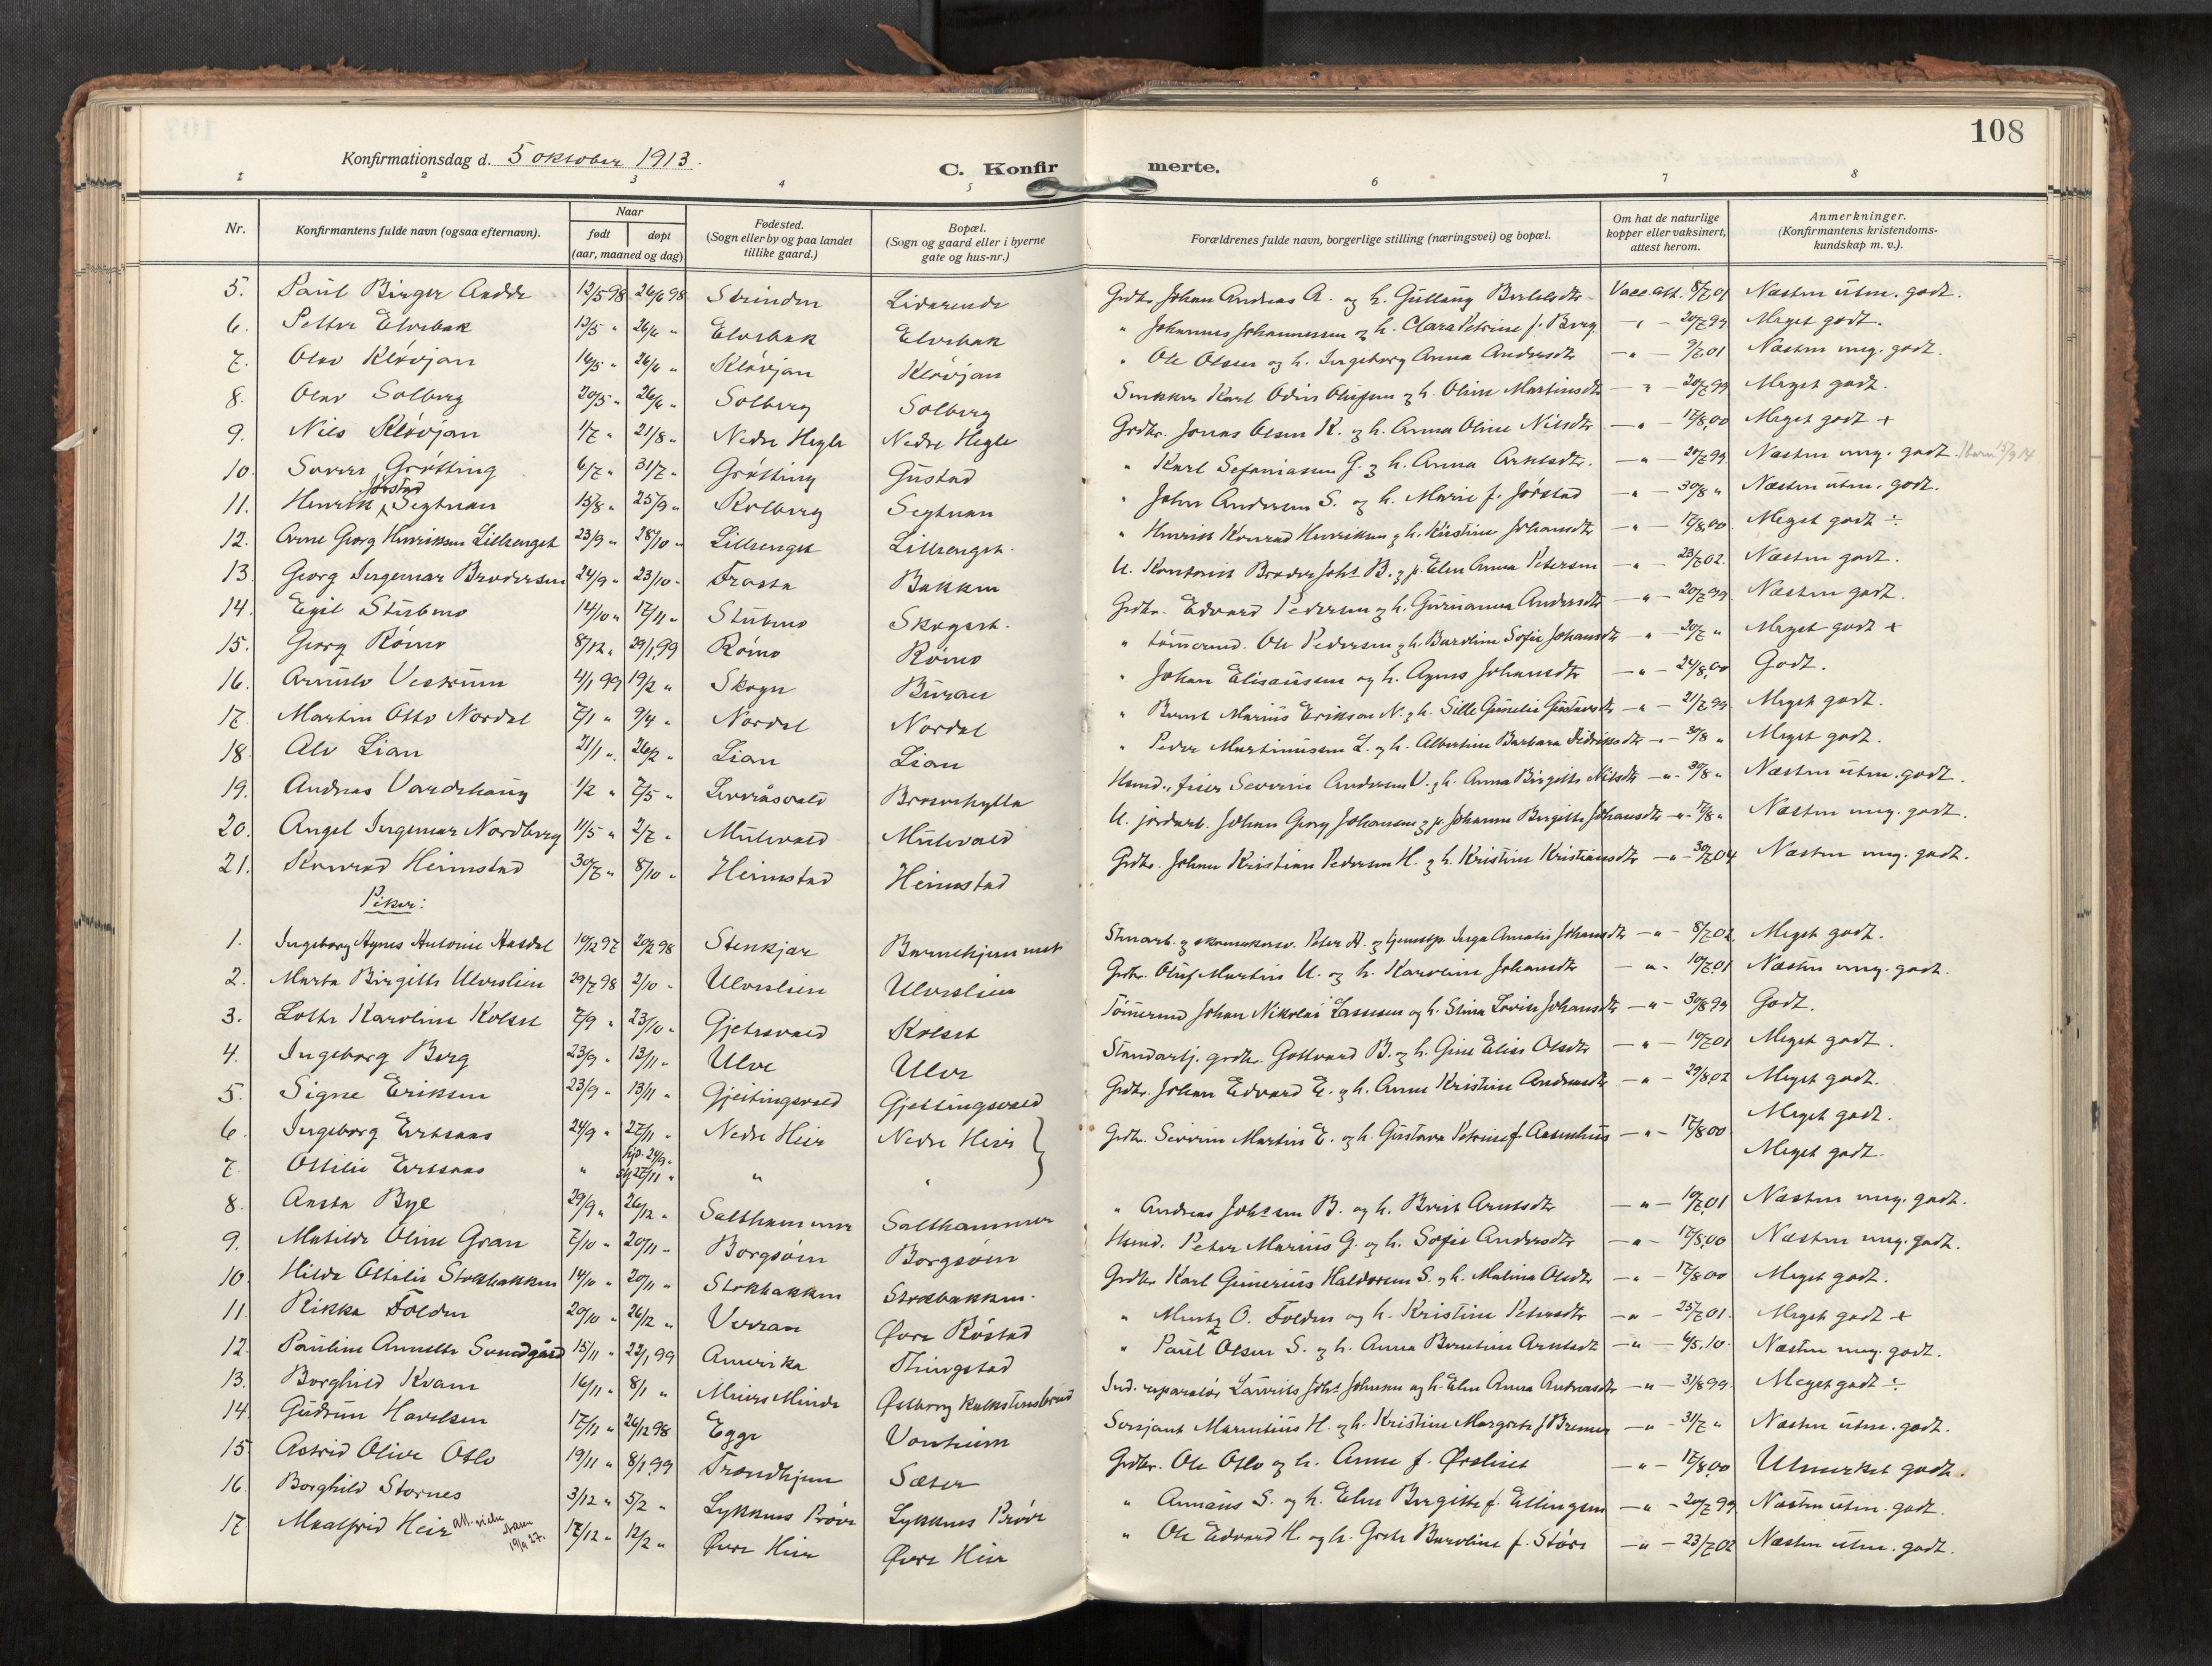 108
Konfirmationsdag d. 5 oktober 1913.
C. Konfirmerte.
1 2 3 4 5 6 7 8
Nr.
Konfirmantens fulde navn (ogsaa efternavn).
Naar
født
døpt
(aar, maaned og dag)
Fødested.
(Sogn eller by og paa landet
tillike gaard.)
Bopæl.
(Sogn og gaard eller i byerne
gate og hus-nr.)
Forældrenes fulde navn, borgerlige stilling (næringsvei) og bopæl.
Om hat de naturlige
kopper eller vaksinert,
attest herom.
Anmerkninger.
(Konfirmantens kristendoms-
kundskap m. v.).
5. Paul Birger 12/5 98 26/6 98 Strinden Grdbr. Johan Andreas A. og h. Vacc. att. 8/7 01 Næsten utm. godt.
6. Petter Elvebak 13/5 " 26/6 " Elvebak Elvebak " Johannes Johannessen og h. Clara Petrine f. Berg - " - 20/7 99 Meget godt.
7. Olav Kløvjan 14/5 " 26/6 " Kløvjan Kløvjan " Ole Olsen og h. Ingeborg Anna Andersdtr - " - 9/7 01 Næsten mg. godt.
8. Olav Solberg 20/5 " 26/6 " Solberg Solberg Snekker Karl Odin Olufsen og h. Oline Martinsdtr - " - 20/7 99 Meget godt.
9. Nils Kløvjan 1/7 " 21/8 " Nedre Hegle Nedre Hegle Grdbr. Jonas Olsen K. og h. Anna Oline Nilsdtr - " - 17/8 00 Meget godt +
10. Sverre Grøtting 6/7 " 31/7 " Grøtting Gustad " Karl Sefaniassen G. og h. Anna Arntsdtr. - " - 20/7 99 Næsten mg. godt.
11. Henrik Jørstad Segtnan 15/8 " 25/9 " Kolberg Segtnan " John Andersen S. og h. Marie f. Jørstad - " - 30/8 " Næsten utm. godt.
12. Arne Georg Henriksen Lillsenget 23/9 " 28/10 " Lillsenget Lillsenget. " Henrik Konrad Henriksen og h. Kirstine Johansdtr - " - 17/8 00 Meget godt ÷
13. Georg Ingemar Brodersen 24/9 " 23/10 " Frosta Bakken U. Kontorist Broder Johs B. og p. Elen Anna Petersen - " - 23/7 02. Næsten godt.
14. Egil Stubmo 14/10 " 17/11 " Stubmo Skogset. Grdbr. Edvard Pedersen og h. Gurianna Andersdtr - " - 20/7 99 Næsten godt.
15. Georg Rømo 8/12 " 29/1 99 Rømo Rømo " tømmermd. Ole Pedersen og h. Beroline Sofie Johansdtr - " - 20/7 " Meget godt +
16. Arnulv Vestrum 4/1 99 19/2 " Skogn Buran " Johan Elisæussen og h. Agnes Johansdtr - " - 24/8 00 Godt.
17. Martin Otto Nordal 7/1 " 9/4 " Nordal Nordal " Bernt Marius Erikson N. og h. Sille Gunelie Gustavsdtr - " - 21/7 99 Meget godt.
18. Alv Lian 21/1 " 26/2 " Lian Lian " Peder Martinussen L. og h. Albertine Barbara Didriksdtr - " - 30/8 " Meget godt.
19. Andreas Vardehaug 1/2 " 7/5 " Severin Andersen V. og h. Anna Birgitte Nilsdtr - " - 30/8 " Næsten utm. godt.
20. Angel Ingemar Nordberg 11/5 " 2/7 " Mulevald Mulevald U. jordarb. Johan Georg Johansen og p. Johanna Birgitte Johansdtr - " - 17/8 " Næsten mg. godt.
21. Konrad Heimstad 30/7 " 8/10 " Heimstad Heimstad Grdbr. Johan Kristian Pedersen H. og h. Kristine Kristiansdtr - " - 30/7 04 Næsten mg. godt.
Piker:
1. Ingeborg Agnes Antonie Aasdal 19/12 97 20/2 98 Stenkjær Stenarb. og Peter A. og Inga Amalie Johansdtr - " - 8/7 02. Meget godt.
2. Marta Birgitte Ulveslien 29/7 98 2/10 " Ulveslien Ulveslien Grdbr. Oluf Martin U. og h. Karoline Johansdtr - " - 10/7 01 Næsten mg. godt.
3. Lotte Karoline Kolset 7/9 " 23/10 " Gjetesvald Kolset Tømmermd Johan Nikolai Lassesen og h. Stina Lovise Johansdtr - " - 30/8 99 Godt.
4. Ingeborg Berg 23/9 " 13/11 " Ulve Ulve grdbr. Gottvard B. og h. Gine Elise Olsdtr - " - 10/7 01 Meget godt.
5. Signe Eriksen 23/9 " 13/11 " Gjeitingsvald Gjettingsvald Grdbr. Johan Edvard E. og h. Anne Kristine Andreasdtr - " - 29/8 02 Meget godt.
6. Ingeborg Ertsaas 24/9 " 27/11 " Nedre Heir Nedre Heir Grdbr. Severin Martin E. og h. Gustava Petrine f. Aasenhus - " - 17/8 00 Meget godt.
7. Ottilie Ertsaas " hjd. 24/9 " st. 27/11 " " " Meget godt.
8. Aasta Bye 29/9 " 26/12 " Salthammer Salthammer " Andreas Johssen B. og h. Berit Arntsdtr - " - 10/7 01 Næsten mg. godt.
9. Matilde Oline Gran 7/10 " 20/11 " Borgsøien Borgsøien Husmd. Peter Marius G. og h. Sofie Andersdtr - " - 17/8 00 Næsten mg. godt.
10. Hilda Ottilie Stokbakken 14/10 " 20/11 " Stokbakken Stokbakken. Grdbr Karl Gunerius Haldorsen S. og h. Malina Olsdtr - " - 17/8 00 Meget godt.
11. Rikka Folden 20/10 " 26/12 " Verran Øvre Røstad " O. Folden og h. Kristine Petersdtr - " - 25/7 01 Meget godt +
12. Pauline Annette Sundgård 15/11 " 22/1 99 Amerika Thingstad " Paul Olsen S. og h. Anna Berntine Arntsdt - " - 4/5 10. Næsten mg. godt.
13. Borghild Kvam 16/11 " 8/1 " Østborg Kalkstensbrud Laurits Johs Johnsen og h. Elen Anna Andreasdtr - " - 31/8 99. Meget godt ÷
14. Gudrun Havelsen 17/11 " 26/12 98 Egge Vonheim Sersjant Marentius H. og h. Kristine Margrete f. Bremer - " - 31/7 " Næsten utm. godt.
15. Astrid Olive Oslo 19/11 " 8/1 99 Trondhjem Sæter Grdbr. Ole Oslo og h. Anne f. Ørsliet - " - 17/8 00 Utmerket godt.
16. Borghild Stornes 3/12 " 5/2 " Lykkens Prøve Lykkens Prøve " Annæus S. og h. Elen Birgitte f. Ellingsen - " - 20/7 99. Næsten utm. godt.
17. Maalfrid Heir 17/12 " 12/2 " Øvre Heir Øvre Heir " Ole Edvard H. og h. Grete Baroline f. Støre - " - 23/7 02 Næsten utm. godt.
19/9 27.